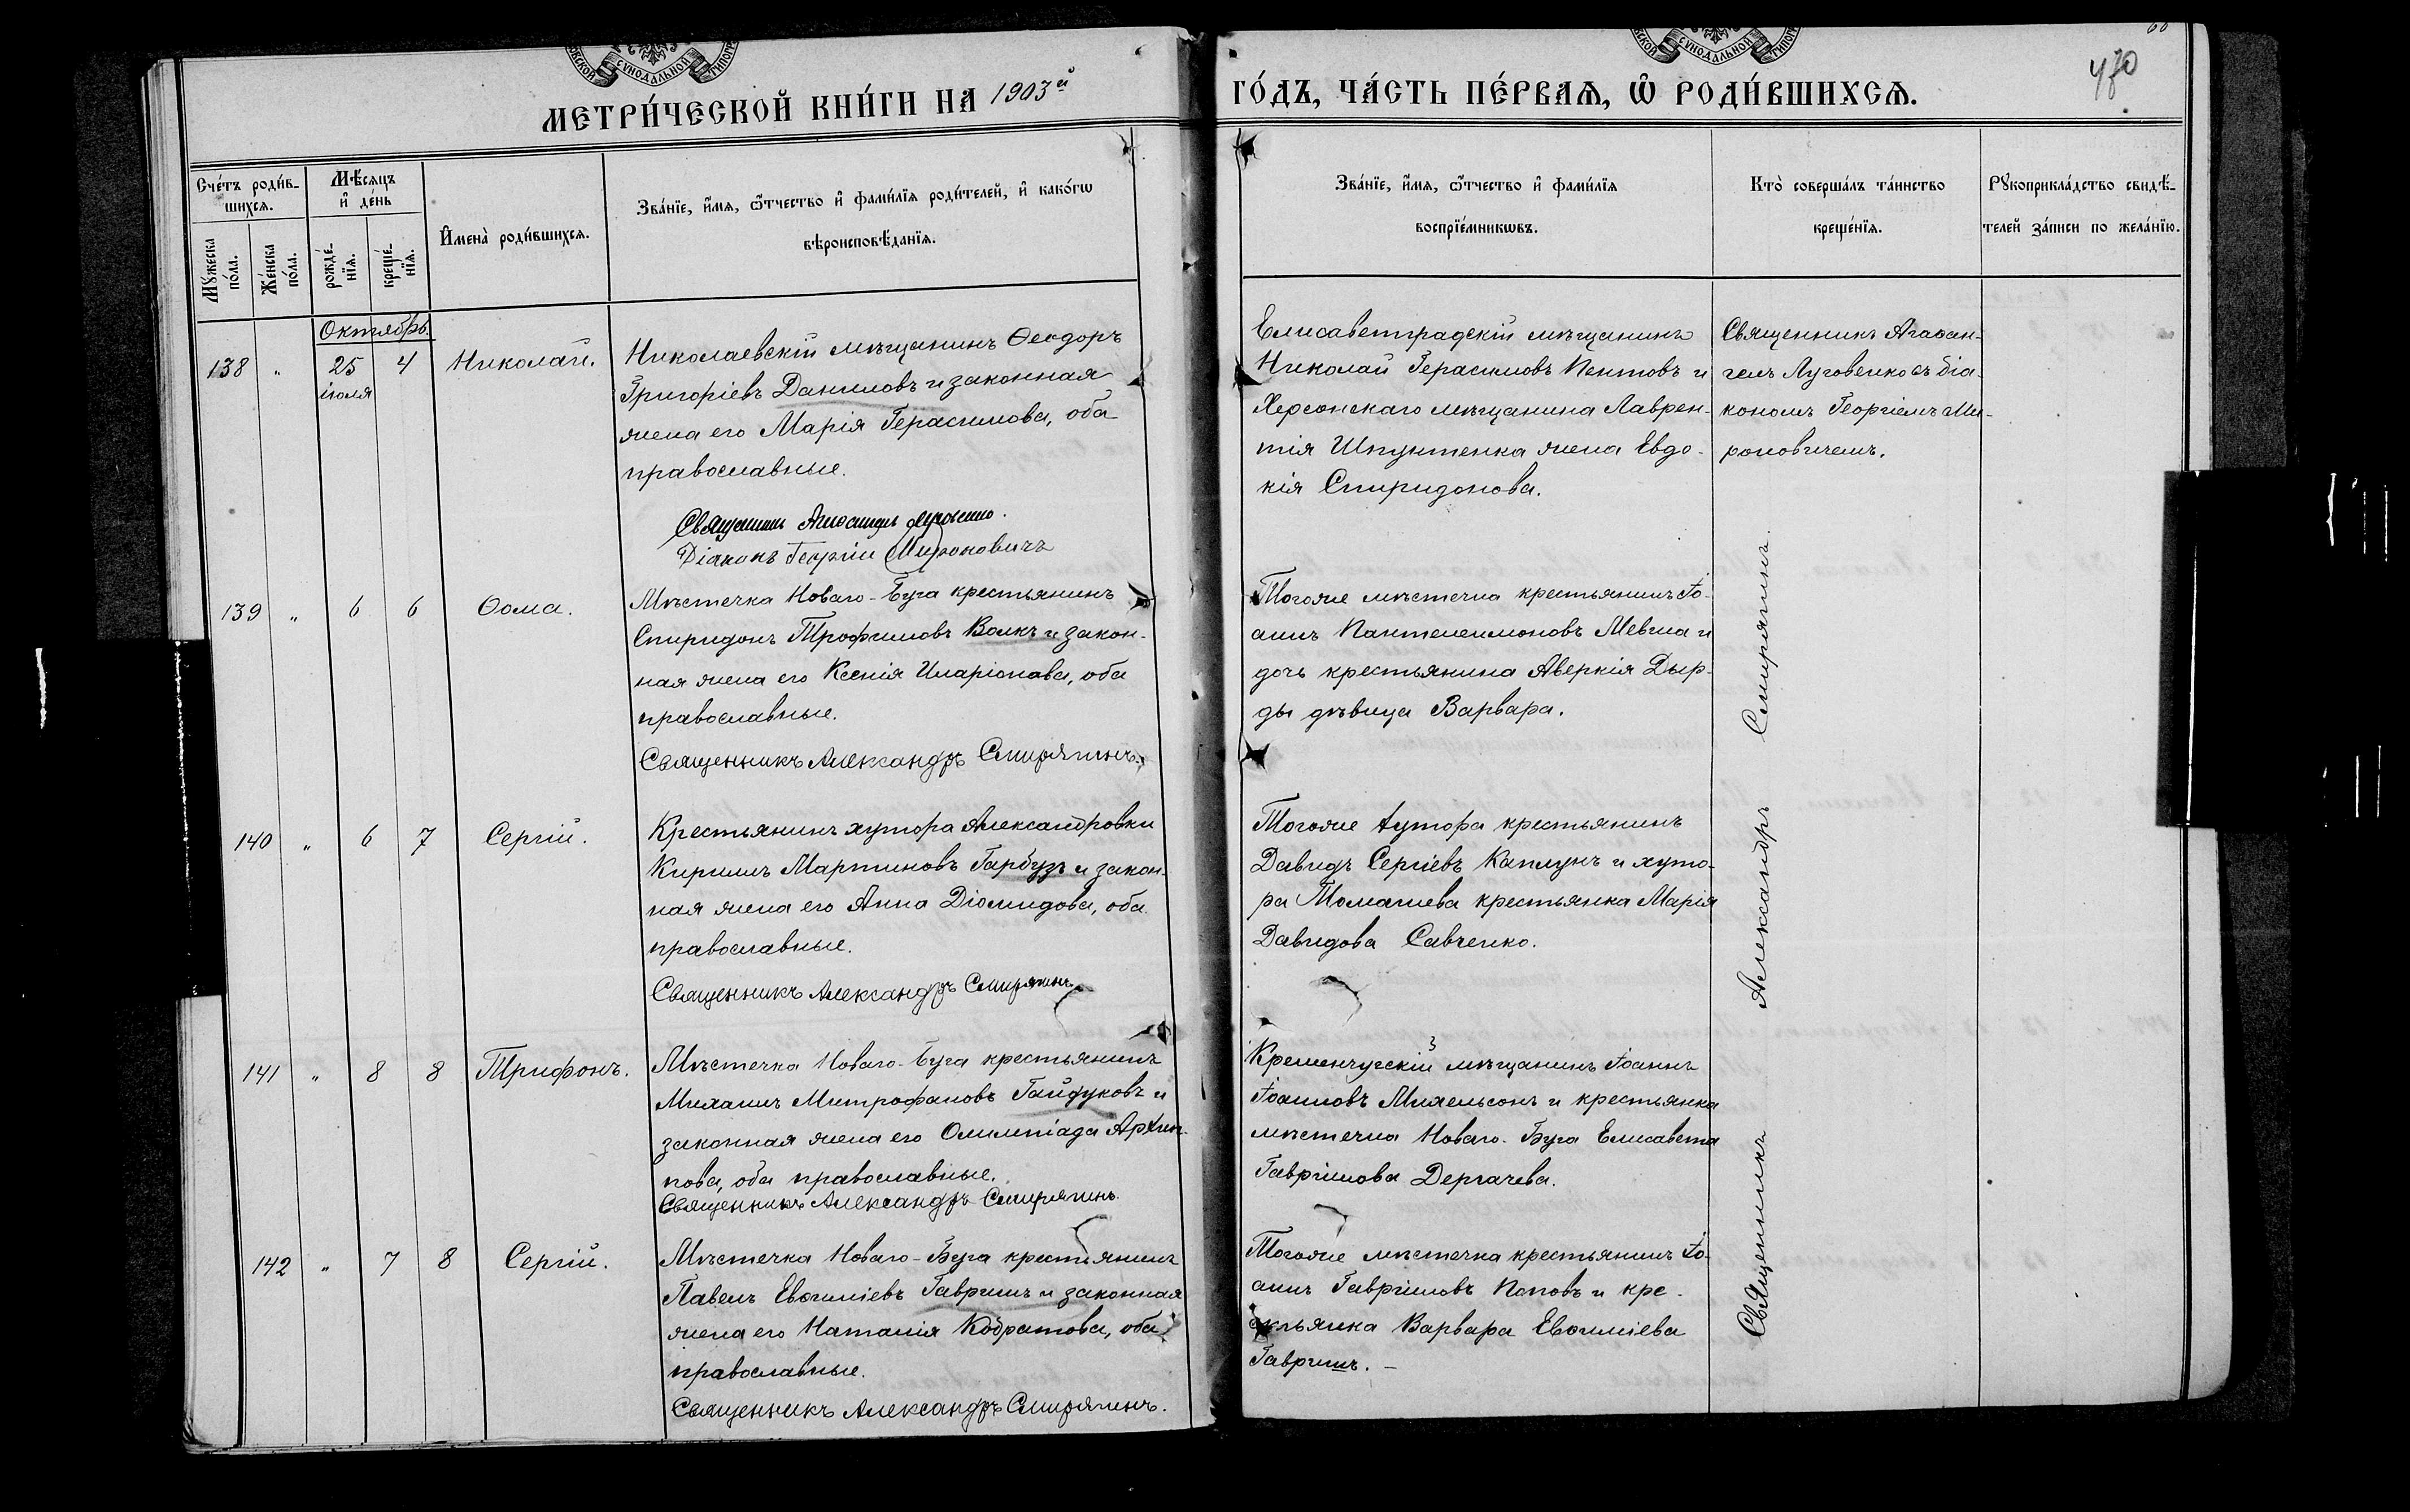 МЕТРИ́ЧЕСКОЙ КНИ́ГИ НА 1903й
ГО́ДЪ, ЧА́СТЬ ПЕ́РВАѦ, Ѽ РОДИ́ВШИХСѦ.
470
Сче́тъ роди́в-
шихсѧ.
Мѣ́сѧцъ
и҆ де́нь
Мꙋжеска
по́ла.
Же́нска
по́ла.
рожде́-
нїѧ.
креще́-
нїѧ.
И҆мена̀ роди́вшихсѧ.
Зва́нїе, и҆́мѧ, ѻ҆́тчество и҆ фами́лїѧ роди́телей, и҆ како́гѡ
вѣроисповѣ́данїѧ.
Зва́нїе, и҆́мѧ, ѻ҆́тчество и҆ фами́лїѧ
воспрїе́мникѡвъ.
Кто̀ соверша́лъ та́инство
креще́нїѧ.
Рꙋкоприкла́дство свидѣ́-
телей за́писи по жела́нїю.
Октябрь.
138 " 25 4 Николай.
іюля
Николаевскій мѣщанинъ Ѳеодоръ
Григоріевъ Даниловъ и законная
жена его Марія Герасимова, оба
православные.
Священникъ Агаѳангелъ Луговенко.
Діаконъ Георгій Мироновичъ
Елисаветградскій мѣщанинъ
Николай Герасимовъ Пентовъ и
Херсонскаго мѣщанина Лаврен-
тія Шпунтенка жена Евдо-
кія Спиридонова.
Священникъ Агаѳан-
гелъ Луговенко съ діа-
кономъ Георгіемъ Ми-
роновичемъ.
139 " 6 6 Ѳома.
Мѣстечка Новаго-Буга крестьянинъ
Спиридонъ Трофимовъ Волкъ и закон-
ная жена его Ксенія Иларіонова, оба
православные.
Священникъ Александръ Смирягинъ.
Тогоже мѣстечка крестьянинъ Іо-
аннъ Пантелеимоновъ Мевша и
дочь крестьянина Аверкія Дыр-
ды дѣвица Варвара.
140 " 6 7 Сергій.
Крестьянинъ хутора Александровки
Кириллъ Мартиновъ Гарбузъ и закон-
ная жена его Анна Діомидова, оба
православные.
Священникъ Александръ Смирягинъ.
Тогоже хутора крестьянинъ
Давидъ Сергіевъ Каплунъ и хуто-
ра Томашева крестьянка Марія
Давидова Савченко.
141 " 8 8 Трифонъ.
Мѣстечка Новаго-Буга крестьянинъ
Михаилъ Митрофановъ Гайдуковъ и
законная жена его Олимпіада Архип-
пова, оба православные.
Священникъ Александръ Смирягинъ.
Кременчугскій мѣщанинъ Іоаннъ
Іоанновъ Михельсонъ и крестьянка
мѣстечка Новаго-Буга Елисавета
Гавріилова Дергачева.
142 " 7 8 Сергій.
Мѣстечка Новаго-Буга крестьянинъ
Павелъ Евѳиміевъ Гавришъ и законная
жена его Наталія Кодратова, оба
православные.
Священникъ Александръ Смирягинъ.
Тогоже мѣстечка крестьянинъ Іо-
аннъ Гавріиловъ Поповъ и кре-
стьянка Варвара Евѳиміева
Гавришъ. —
Священникъ Александръ Смирягинъ.